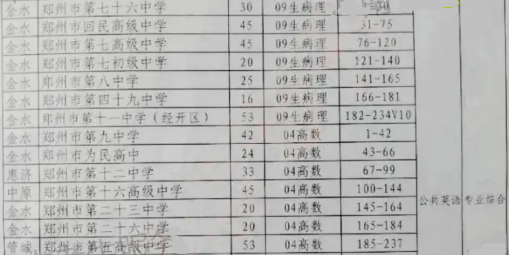 金水 郑州市第七十六中学 30 09生病理
金水 郑州市回民高级中学 45 09生病理 31-75
金水 郑州市第七高级中学 45 09生病理 76-120
金水 郑州市第七初级中学 20 09生病理 121-140
金水 郑州市第八中学 25 09生病理 141-165
金水 郑州市第四十九中学 16 09生病理 166-181
金水 郑州市第十一中学(经开区) 53 09生病理 182-234V10
金水 郑州市第九中学 42 04高数 1-42
金水 郑州市为民高中 24 04高数 43-66
惠济 郑州市第十二中学 33 04高数 67-99
中原 郑州市第十六高级中学 45 04高数 100-144
金水 郑州市第二十三中学 20 04高数 145-164
金水 郑州市第二十六中学 20 04高数 165-184
管城 郑州市第五高级中学 53 04高数 185-237
公共英语 专业综合